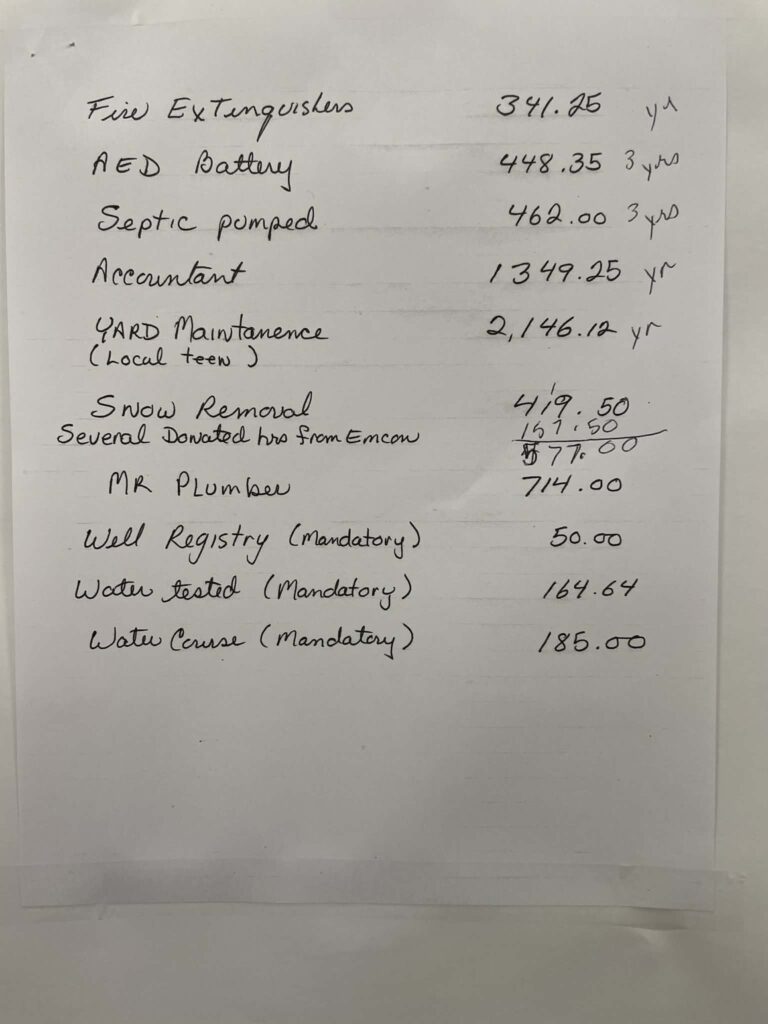 Fire Extinguishers 341.25 yr
AED Battery 448.35 3 yrs
Septic pumped 462.00 3 yrs
Accountant 1349.25 yr
YARD Maintanence 2,146.12 yr
(Local teen)
Snow Removal 419.50
Several Donated hrs from Emcon 157.50
577.00
MR PLumber 714.00
Well Registry (Mandatory) 50.00
Water tested (Mandatory) 164.64
Water Course (Mandatory) 185.00